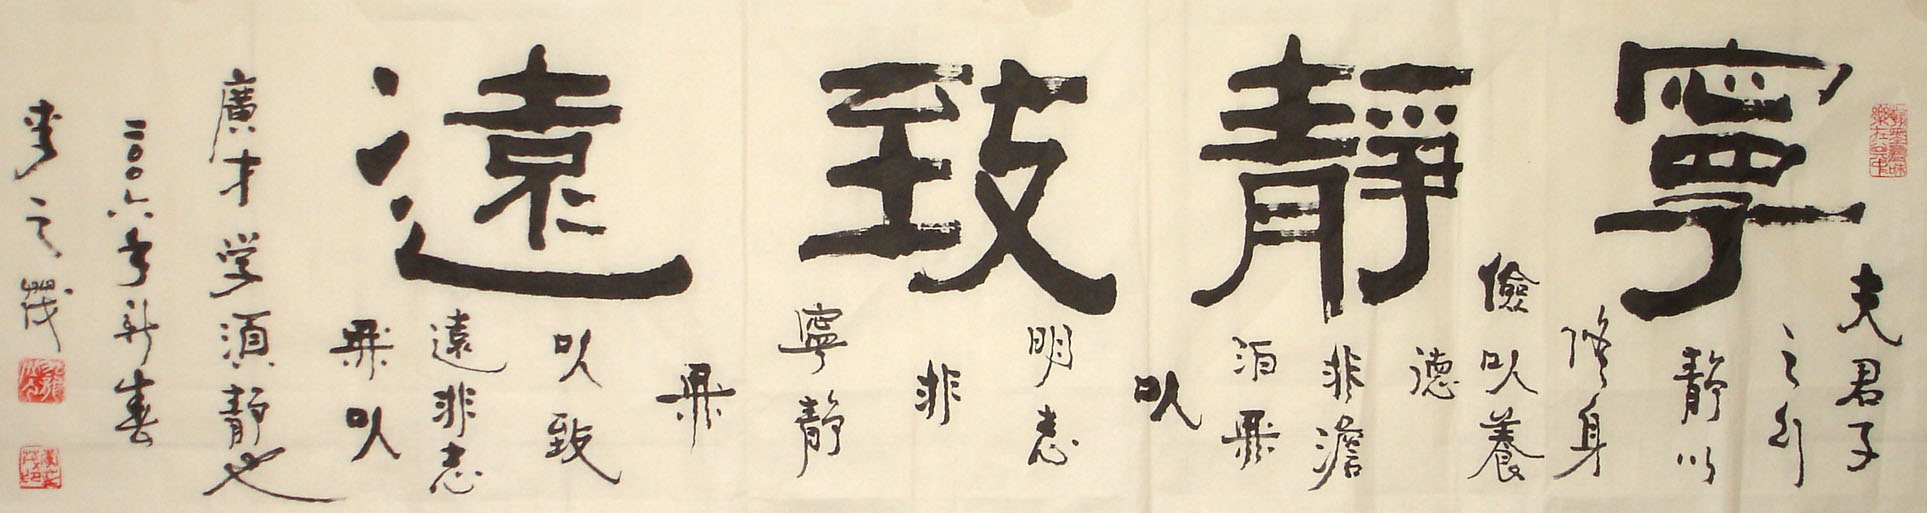 寧靜致遠
夫君子
之行
靜以
修身
儉以養
德
非澹
泊無
以
明志
非
寧靜
無
以致
遠非志
無以
廣才学須靜也
二〇〇六年新春
之茂